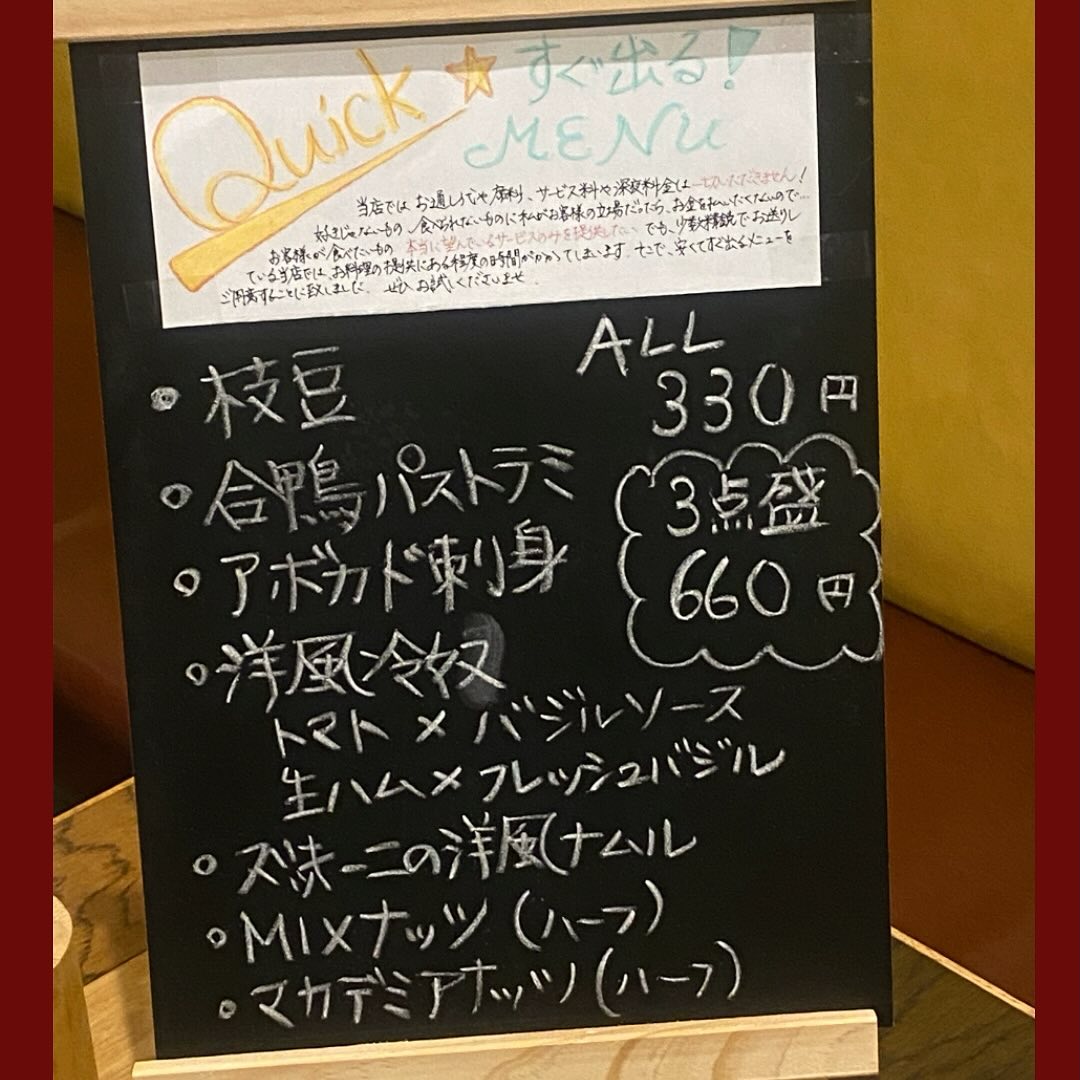 Quick★すぐ出る!
MENU
当店では、お通し代や席料、サービス料や深夜料金は一切いただきません!
好きじゃないもの、食べられないものに私がお客様の立場だったら、お金を払いたくないので…
お客様が食べたいもの 本当に望んでいるサービスのみを提供したい でも、少数精鋭でお送りし
ている当店では、お料理の提供にある程度の時間がかかってしまいます。そこで、安くてすぐ出るメニューを
ご用意することに致しました。ぜひ、お試しくださいませ。
ALL
330円
・枝豆
・合鴨パストラミ
3点盛
660円
・アボカド刺身
・洋風冷奴
トマト×バジルソース
生ハム×フレッシュバジル
・ズッキーニの洋風ナムル
・MIXナッツ(ハーフ)
・マカデミアナッツ(ハーフ)